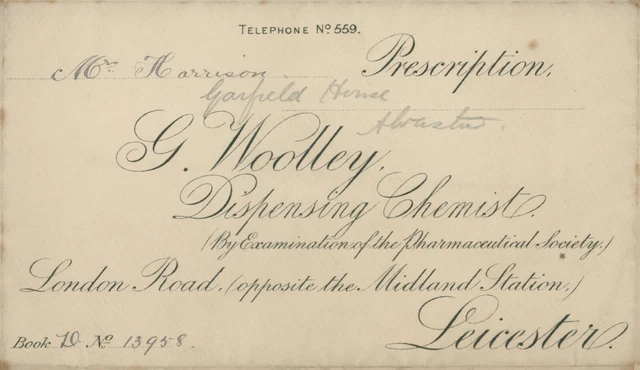 TELEPHONE No 559.
Mrs Harrison. Prescription,
Garfield House
G. Woolley,
Dispensing Chemist.
(By Examination of the Pharmaceutical Society,)
London Road. (opposite the Midland Station,)
Leicester.
Book D No 13958.